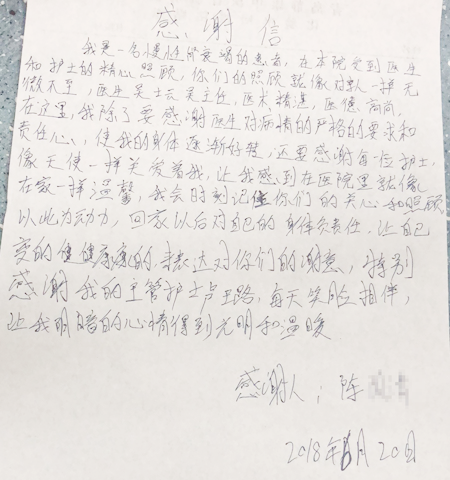 感谢信
我是一名慢性肾衰竭的患者，在本院受到医生
和护士的精心照顾，你们的照顾就像对亲人一样无
微不至，医生吴士云主任，医术精湛，医德高尚，
在这里，我除了要感谢医生对病情的严格的要求和
责任心，使我的身体逐渐好转，还要感谢每一位护士，
像天使一样关爱着我，让我感到在医院里就像
在家一样温馨，我会时刻记住你们的关心和照顾
以此为动力，回家以后对自己的身体负责任，让自己
变的健健康康的，来表达对你们的谢意，特别
感谢我的主管护士卢王路，每天笑脸相伴，
让我阴暗的心情得到光明和温暖
感谢人：陈
2018年8月20日